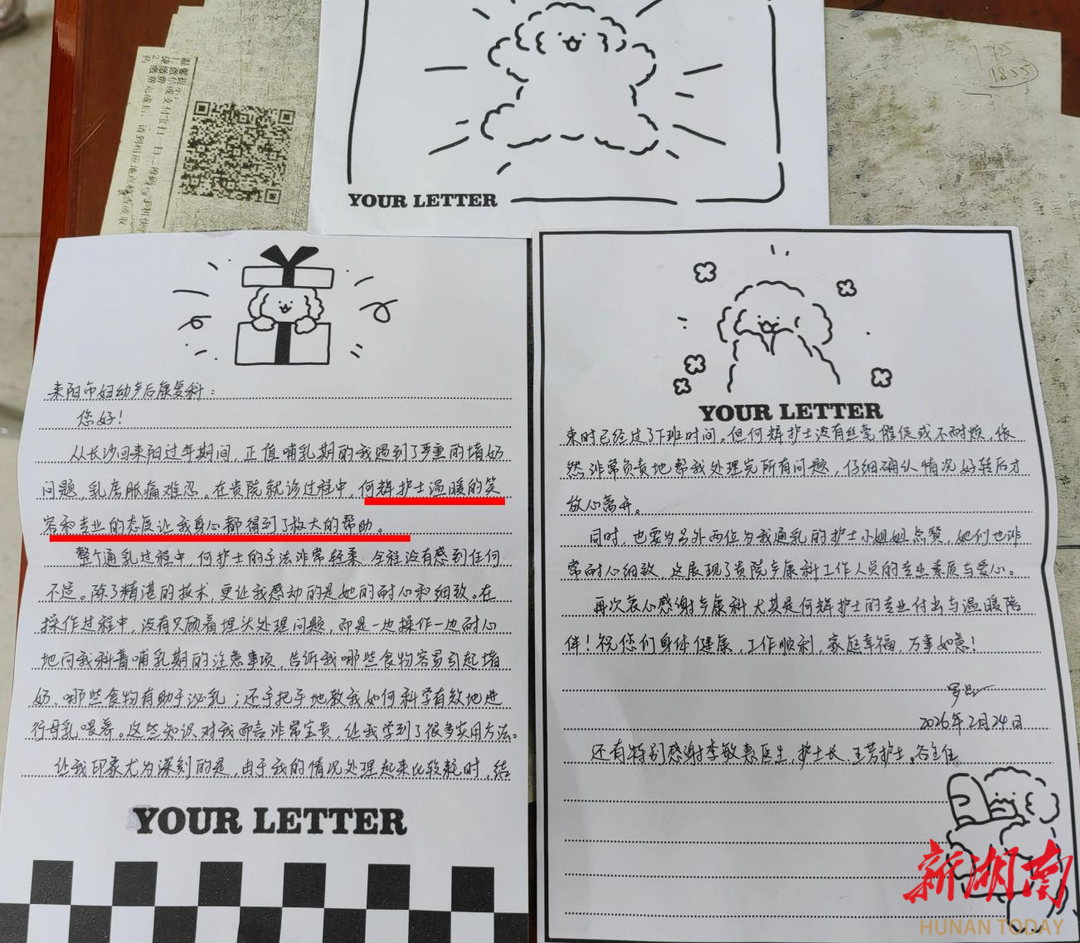 温馨提示
1.微信或支付宝扫一扫二维码
2.缴费完成后，请到相应地点检查或取
1855
YOUR LETTER
耒阳市妇幼产后康复科：
您好！
从长沙回耒阳过年期间，正值哺乳期的我遇到了严重的堵奶
问题，乳房胀痛难忍。在贵院就诊过程中，何辉护士温暖的笑
容和专业的态度让我身心都得到了极大的帮助。
整个通乳过程中，何护士的手法非常轻柔，全程没有感到任何
不适。除了精湛的技术，更让我感动的是她的耐心和细致。在
操作过程中，没有只顾着埋头处理问题，而是一边操作一边耐心
地向我科普哺乳期的注意事项，告诉我哪些食物容易引起堵
奶，哪些食物有助于泌乳；还手把手地教我如何科学有效地进
行母乳喂养。这些知识对我而言非常宝贵，让我学到了很多实用方法。
让我印象尤为深刻的是，由于我的情况处理起来比较耗时，结
YOUR LETTER
YOUR LETTER
束时已经过了下班时间。但何辉护士没有丝毫催促或不耐烦，依
然非常负责地帮我处理完所有问题，仔细确认情况好转后才
放心离开。
同时，也要为另外两位为我通乳的护士小姐姐点赞，她们也非
常耐心细致，这展现了贵院产康科工作人员的专业素质与爱心。
再次衷心感谢产康科尤其是何辉护士的专业付出与温暖陪
伴！祝您们身体健康，工作顺利，家庭幸福，万事如意！
2026年2月24日
还有特别感谢李敏惠医生，护士长，王芳护士，谷主任
新湖南
HUNAN TODAY